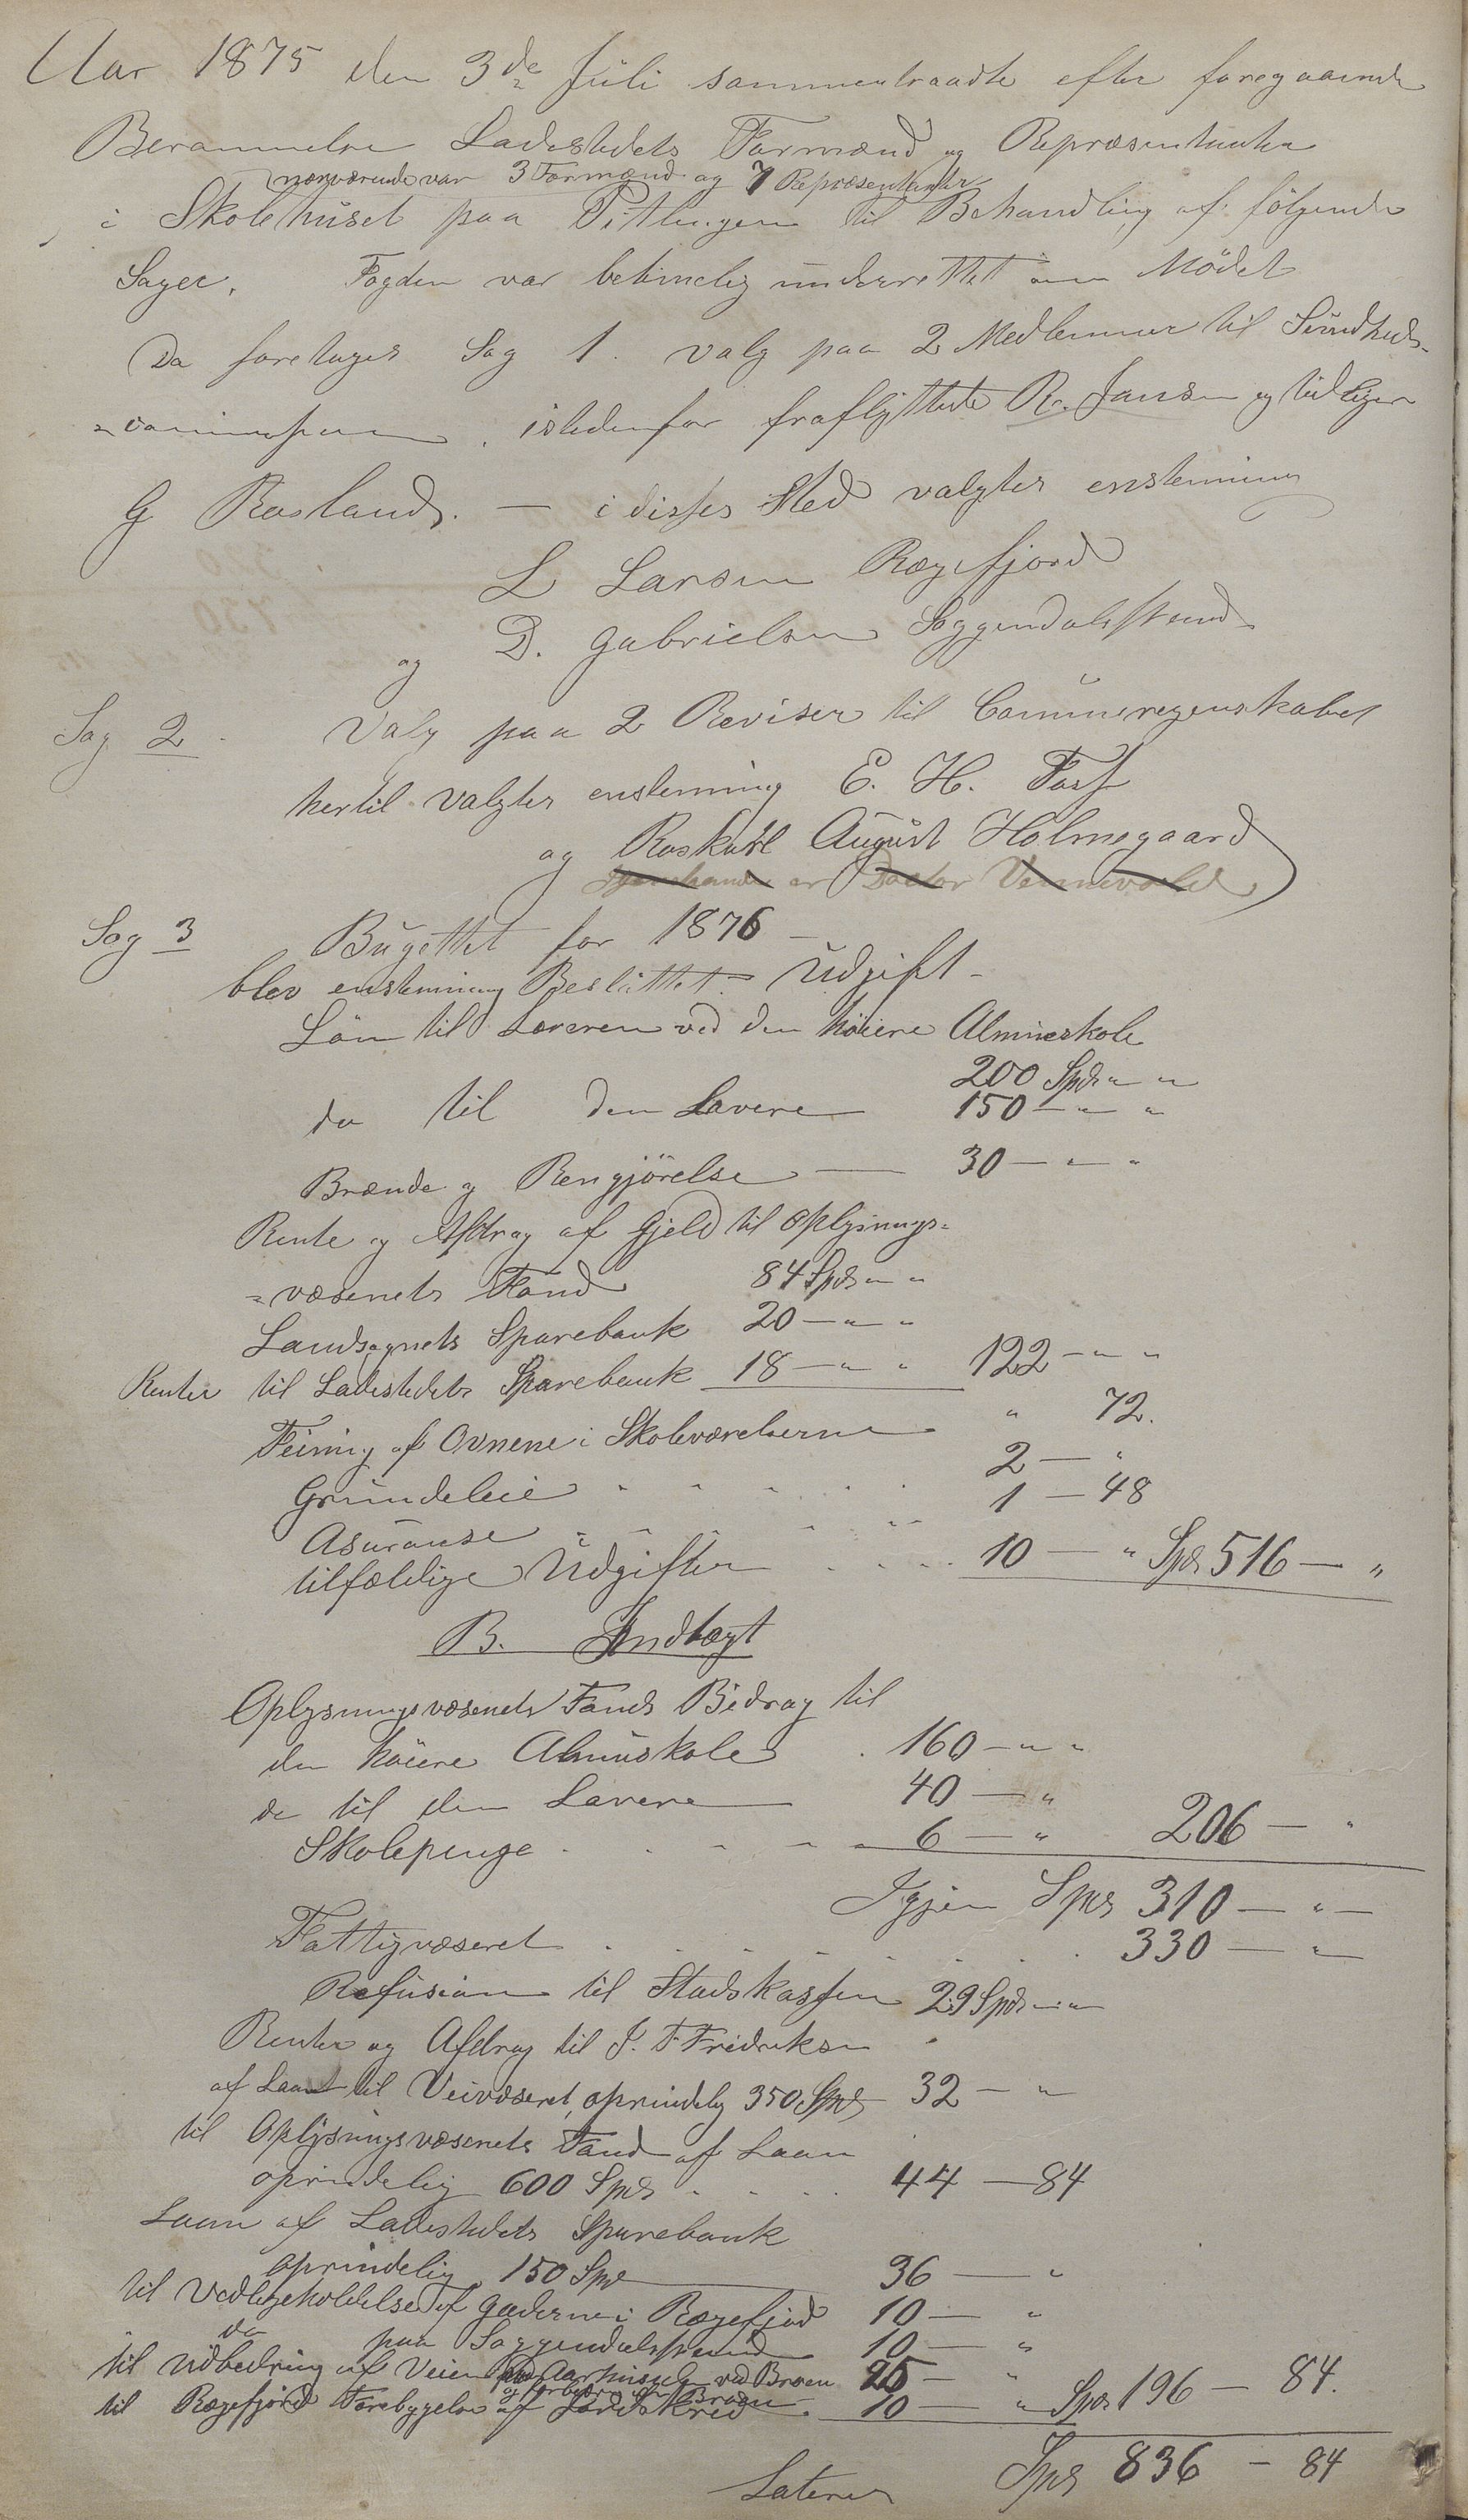 Aar 1875 den 3de Juli sammentraadte efter foregaaende
Berammelse Ladestedets Formænd og Repræsentanter
nærværende var 3 Formænd og 7 Repræsentanter
i Skolehuset paa Pitlingen til Behandling af følgende
Sager. Fogden var betimelig underrettet om Mødet
Da foretoges Sag 1. valg paa 2 Medlemmer til Sundheds-
istedenfor fraflyttede R. Jansen og tidligere
G Rosland. — i disses Sted valgtes enstemmig
L Larsen Rægefjord
og D. Gabrielsen Soggendalsstrand
Sag 2. Valg paa 2 Reviser til Communeregenskabet
hertil valgtes enstemmig E. H. Fass
og August Holmegaard
er Doctor
Sag 3 Bugettet for 1876 —
blev enstemmig Besluttet. Udgift —
Løn til Læreren ved den höiere Almueskole
200 Spd " "
do til den Lavere 150 — " "
Brænde og Rengjörelse — 30 — " "
Rente og Afdrag af Gjeld til Oplysnings-
=væsenets Fond 84 Spd " "
Landsognets Sparebank 20 — " "
Renter til Ladestedets Sparebank 18 — " " 122 — " "
Feining af Ovnene i Skoleværelserne " 72.
Grundeleie 2 — "
Asuranse 1 — 48
tilfældige Udgifter 10 — " Spd 516 — "
B. Indtægt
Oplysningsvæsenets Fonds Bidrag til
den höiere Almuskole 160 — " "
do til den Lavere 40 — "
Skolepenge 6 — " 206 — "
Igjen Spd 310 — " —
Fattigvæsenet 330 — "
Refusion til Stadskassen 29 Spd " "
Renter og Afdrag til J. F. Fredriksen
af Laanet til Veivæsenet, oprindelig 350 Spd 32 — "
til Oplysningsvæsenets Fond af Laan
oprindelig 600 Spd 44 — 84
Laan af Ladestedets Sparebank
oprindelig 150 Spd 36 — "
til Vedligeholdelse af Gaderne i Rægefjord 10 — "
do paa Soggendalsstrand 10 — "
til Udbedring af Veien ved Broen 25 — "
og Broen
til Rægefjord Forebyggelse af Jordskred 10 — " Spd 196 — 84.
Lateres Spd 836 — 84